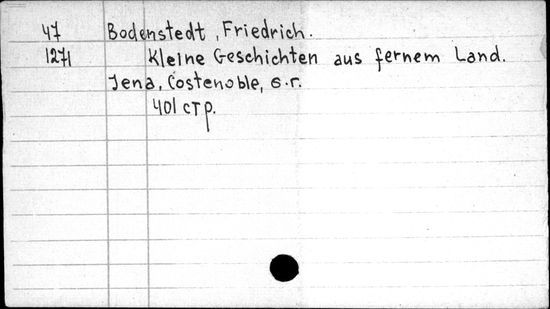 47 Bodenstedt, Friedrich.
1271 Kleine Geschichten aus fernem Land.
Jena, Costenoble, б.г.
401 стр.